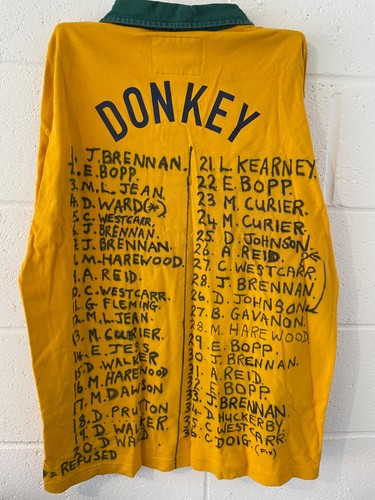 DONKEY
1. J. BRENNAN.
2. E. BOPP.
3. M.L. JEAN.
4. D. WARD(*)
5. C. WESTCARR.
6. J. BRENNAN.
J. BRENNAN.
M. HAREWOOD.
A. REID.
C. WESTCARR.
11. G FLEMING.
12. M.L. JEAN.
13. M. CURIER.
14. E. JESS
15. D. WALKER
16. M. HAREWOOD
17. M. DAWSON
18. D. PRUTTON
19. D. WALKER
20. D WARD
* REFUSED
21. L. KEARNEY.
22 E. BOPP.
23 M. CURIER.
24 M. CURIER.
25. D. JOHNSON.
26. A. REID.
27. C. WESTCARR.
28. J. BRENNAN
26. D. JOHNSON
27. B. GAVANON.
28. M. HAREWOOD
29. E. BOPP.
30. J. BRENNAN.
31. A. REID.
E. BOPP
J. BRENNAN.
D. HUCKERBY.
C. WESTCARR.
C. DOIG.